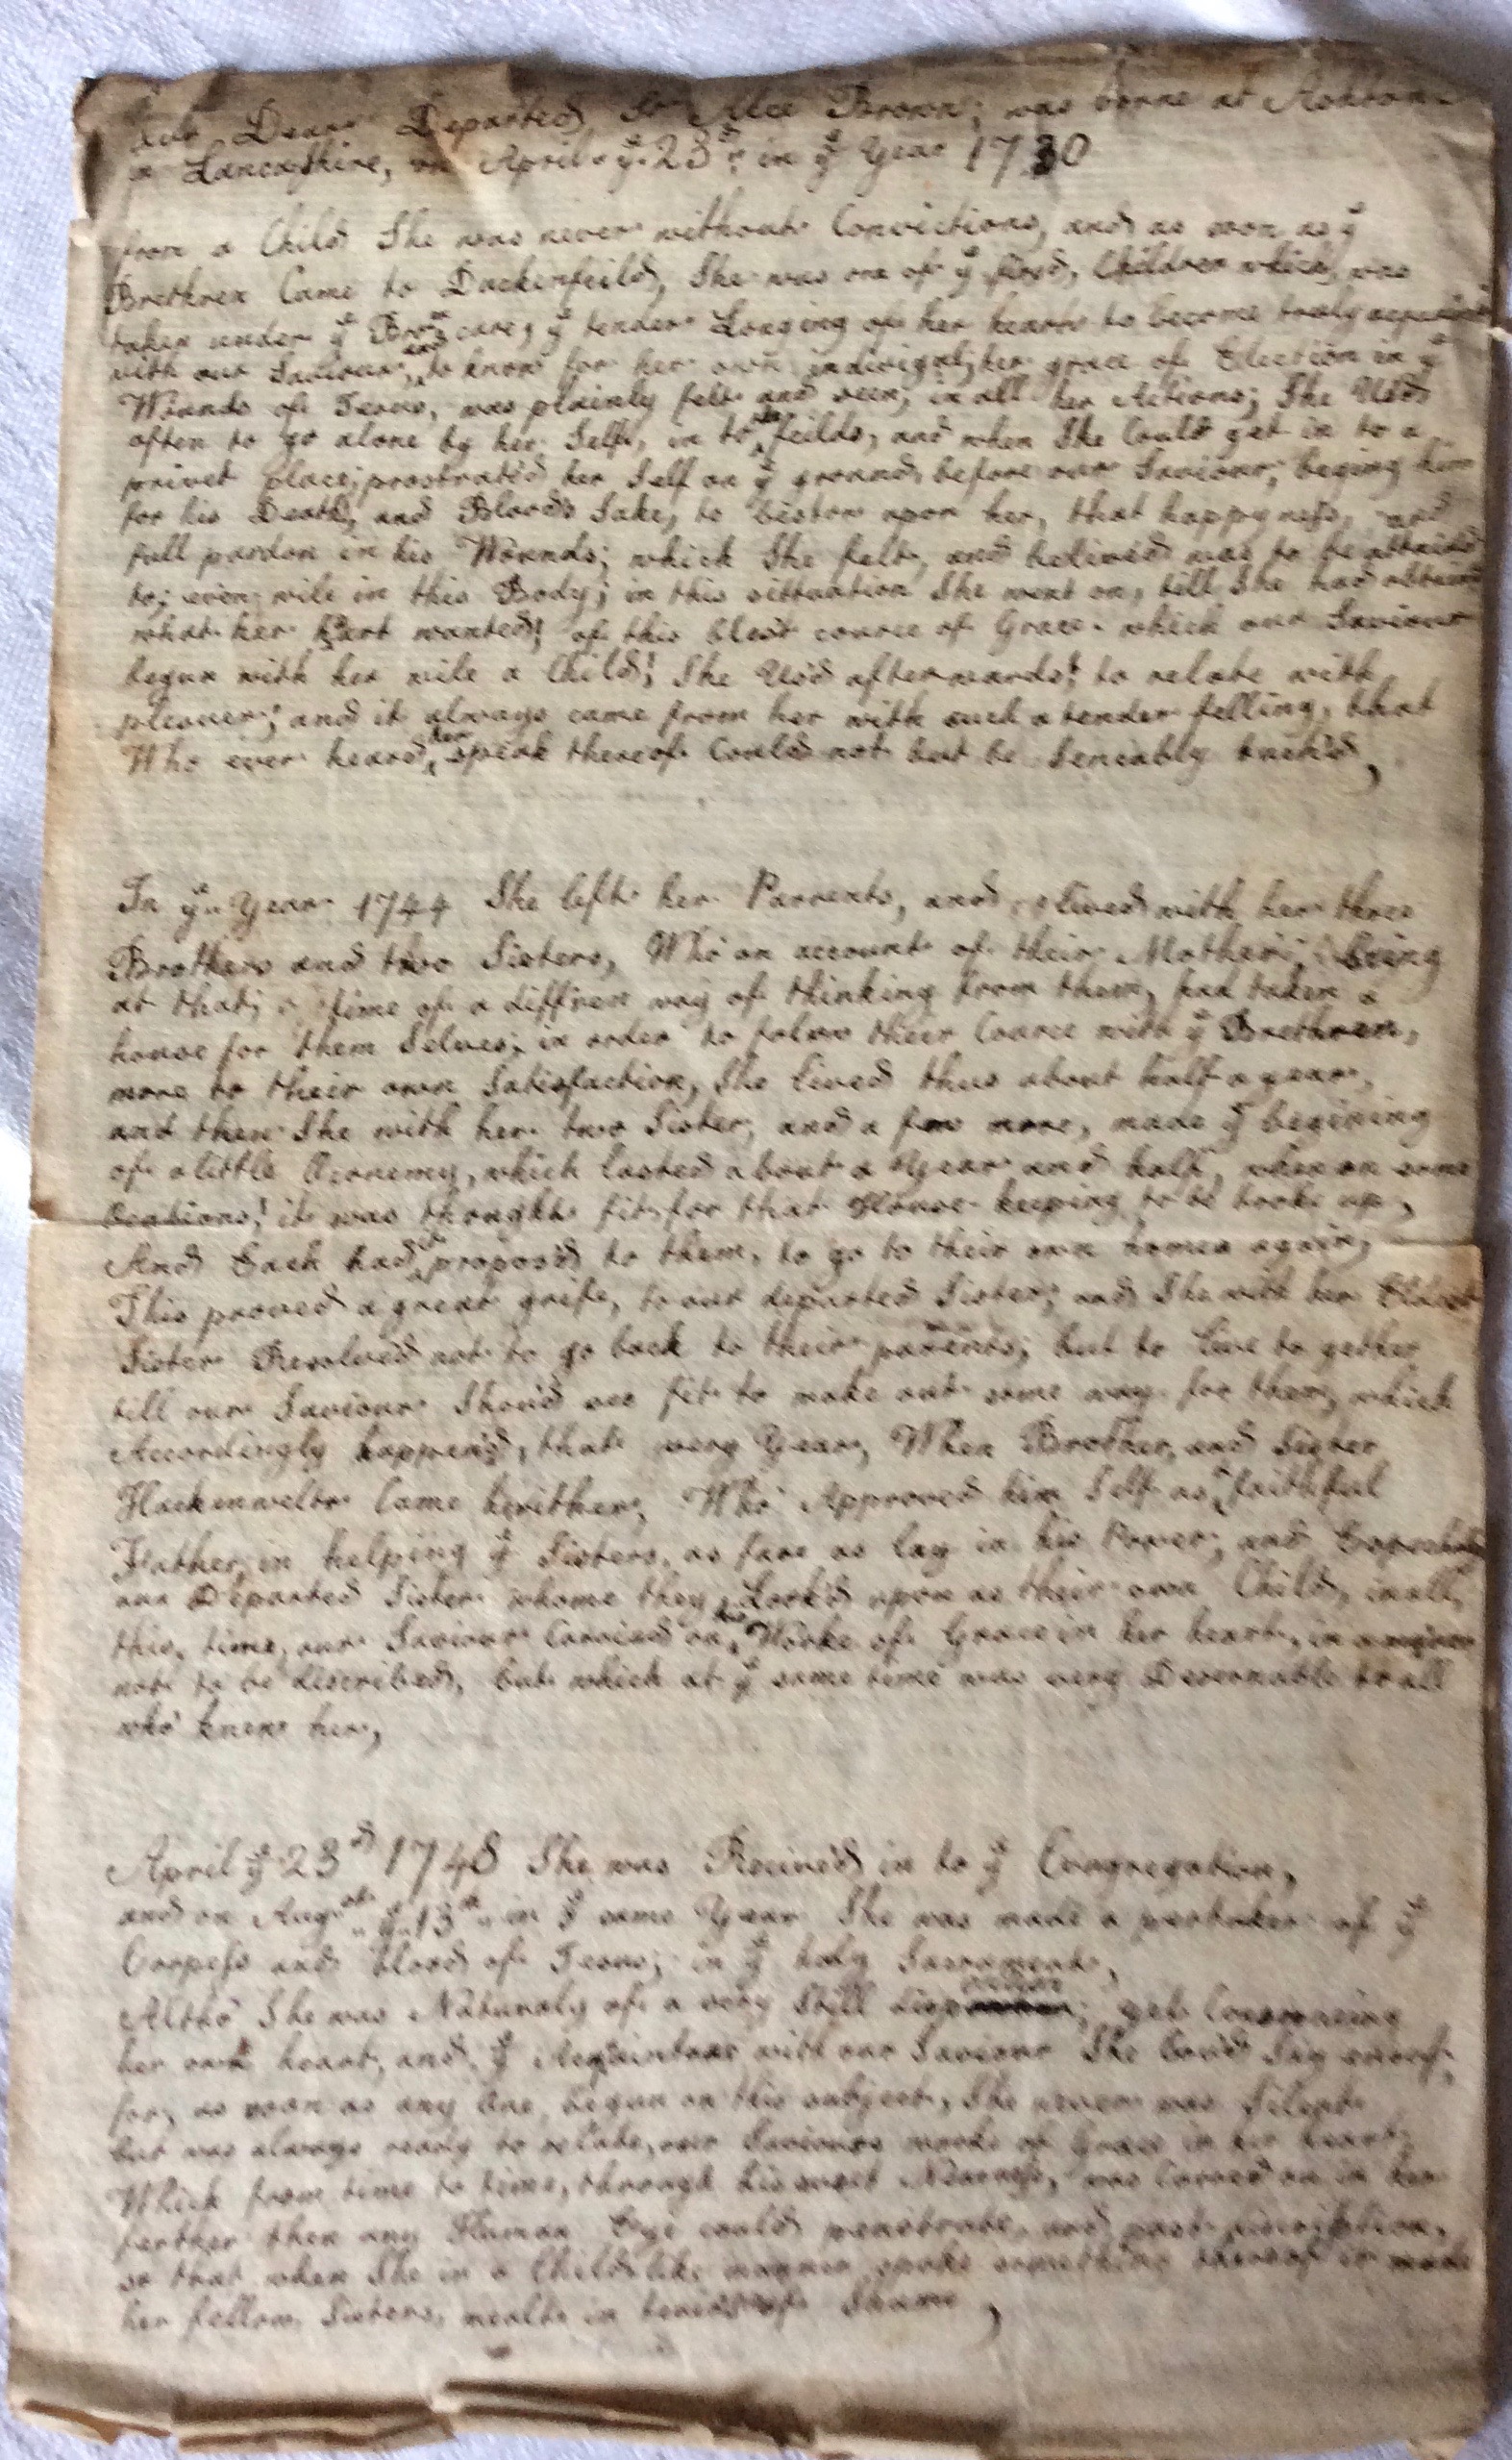 our Dear Departed Sr Alce Brown; was borne at Ashton
in Lancashire, on April ye 23d in ye Year 1730
from a Child She was never without Convictions, and as soon as ye
Brethren Came to Duckenfeild, She was one of ye first, Children which, was
taken under ye Brn care, ye tender Longing of her heart to become truly
with our Saviour, and to know for her own indivigal, her grace of Election in ye
Wounds of Jesus, was plainly felt and seen, in all her Actions; She Us'd
often to go alone by her Self, in to the feilds, and when She Could get in to a
privet place; prostrated her Self on ye ground, before our Saviour, beging him
for his Death, and Bloods Sake, to bestow upon her, that happyness, and
full pardon in his Wounds; which She felt, and belived was to be attaind
to; even wile in this Body; in this sittuation She went on, till She had obtaind
what her heart wanted; of this blest cource of Grace which our Saviour
begun with her wile a Child; She Us'd afterwards to relate with
plesuer; and it always came from her with such a tender felling, that
Who ever heard her speak thereof Could not but be Sencably tuch'd,
In ye Year 1744 She left her Parrents, and lived with her three
Brothers and two Sisters, Who on account of their Mother being
at that time of a diffren way of thinking from them, had taken a
house for them Selves; in order to folow their Cource with ye Brethren,
more to their own Satisfaction, She lived thus about half a year,
and then She with her two Sister, and a few more, made ye begining
of a little Oconemy, which lasted about a Year and half, when on some
Ocations; it was thought fit for that House keeping to be broke up,
And Each had it propos'd to them, to go to their own homes again,
This proved a great grife, to our departed Sister; and She with her Eldest
Sister Resolved not to go back to their parents; but to live to gether
till our Saviour Shou'd see fit to make out some way for them, which
Accordingly happen'd, that very Year, When Brother, and Sister
Hackenwelto Came hewither, Who Approved him Self as a faithfull
Father, in helping ye Sisters, as fare as lay in his Power, and
our Departed Sister whome they Look'd upon as their own Child, in all
this time our Saviour Caried on his Worke of Grace in her heart, in a
not to be discribed, but which at ye same time was very Desernable to all
who knew her,
April ye 23d 1748 She was Reciev'd in to ye Congregation,
and on Augst ye 13th in ye same Year She was made a partaker of ye
Corpess and blood of Jesus; in ye holy Sacrament,
Altho' She was Naturaly of a very Still disposition; yet Conserning
her own heart, and ye Acquaintnac with our Saviour She Coud Say
for, as soon as any One begun on this subject, She never was Silent
but was always ready to relate, our Saviours worke of Grace in her heart;
Which from time to time, through his Nearness, was Carred on in her
farther then any Human Eye could penetrate, and past discription,
so that when She in a Childlike manner spoke something thereof it made
her fellow Sisters, mealt in tears of Shame,